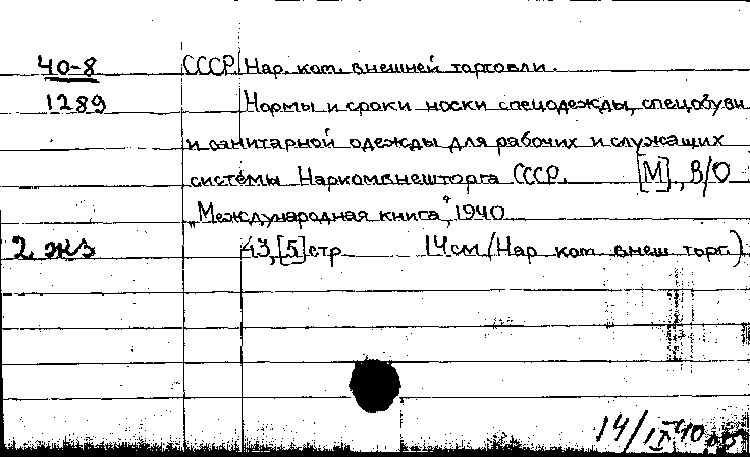 40-8 СССР. Нар. ком. внешней торговли.
1289 Нормы и сроки носки спецодежды, спецобуви
и санитарной одежды для рабочих и служащих
системы Наркомвнешторга СССР. [М]., В/О
„Международная книга", 1940
2 экз 43,[5] стр 14 см (Нар ком. внеш. торг.)
14/IX 40